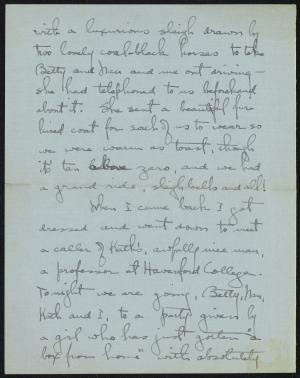 with a luxurious sleigh drawn by
two lovely coal-black horses to take
Betty and Nan and me out driving –
she had telephoned to us beforehand
about it. She sent a beautiful fur
lined coat for each of us to wear so
we were warm as toast, though
it's ten above zero, and we had
a grand ride, sleighbells and all!
When I came back I got
dressed and went down to meet
a caller of Kath's, awfully nice man,
a professor at Haverford College.
Tonight we are going, Betty, Nan,
Kath and I, to a party given by
a girl who has just gotten "a
box from home" with absolutely